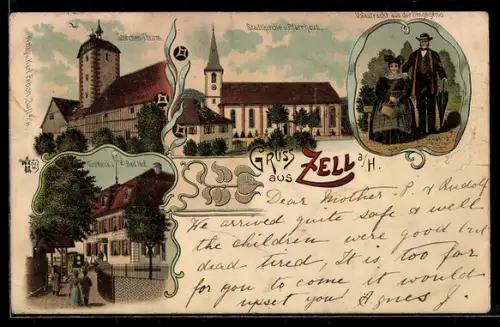 Storchen-Thurm.
Stadtkirche u. Pfarrhaus.
Volkstracht aus der Umgegend.
Gruss
aus
Zell a/H.
Dear Mother P. & Rudolf
We arrived quite safe & well
the children were good but
dead tired, It is too far
for you to come it would
upset you. Agnes J.